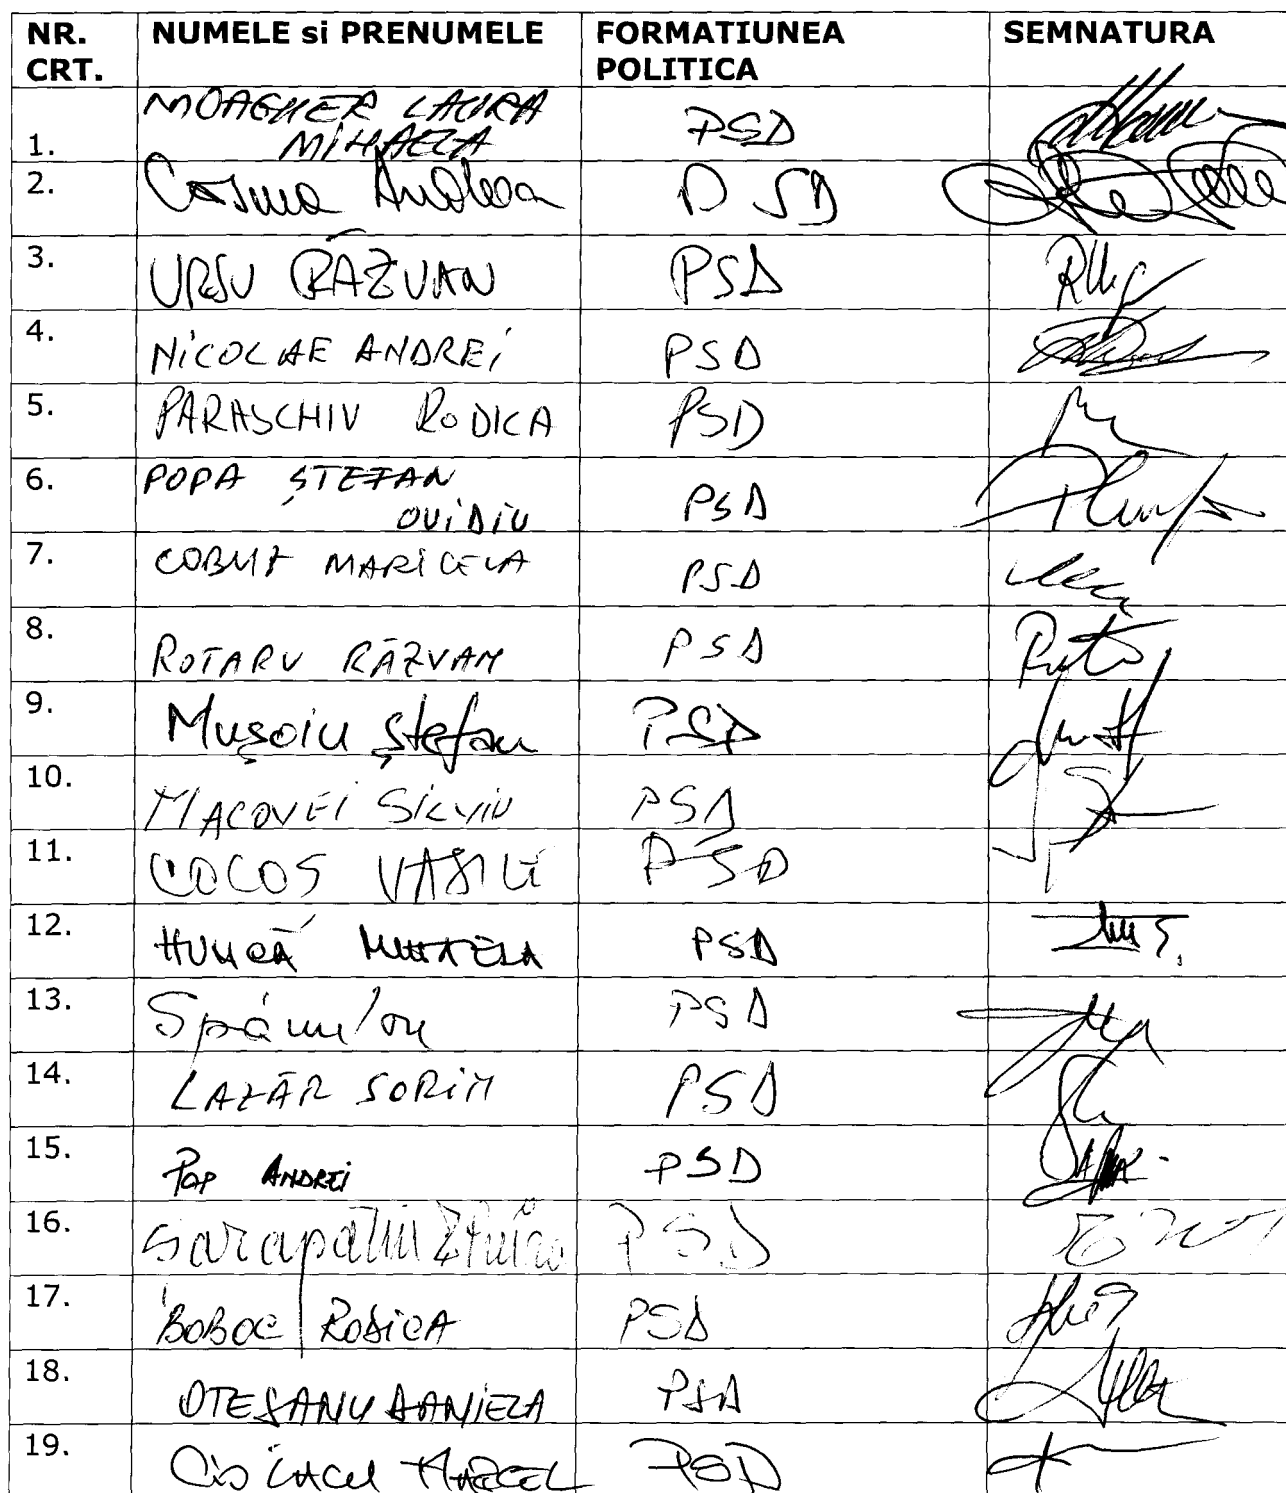 NR. CRT. NUMELE si PRENUMELE FORMATIUNEA POLITICA SEMNATURA
1. MOAGHER LAURA MIHAELA PSD
2. Cosma Andreea PSD
3. URSU RĂZVAN PSD
4. NICOLAE ANDREI PSD
5. PARASCHIV RODICA PSD
6. POPA ȘTEFAN OVIDIU PSD
7. MARICELA PSD
8. ROTARU RĂZVAN PSD
9. Mușoiu Ștefan PSD
10. MACOVEI SILVIU PSD
11. COCOS VASILE PSD
12. HUNCĂ MIHAELA PSD
13. Spânu Ion PSD
14. LAZĂR SORIN PSD
15. POP ANDREI PSD
16. PSD
17. BOBOC RODICA PSD
18. OTESANU DANIELA PSD
19. MARCEL PSD